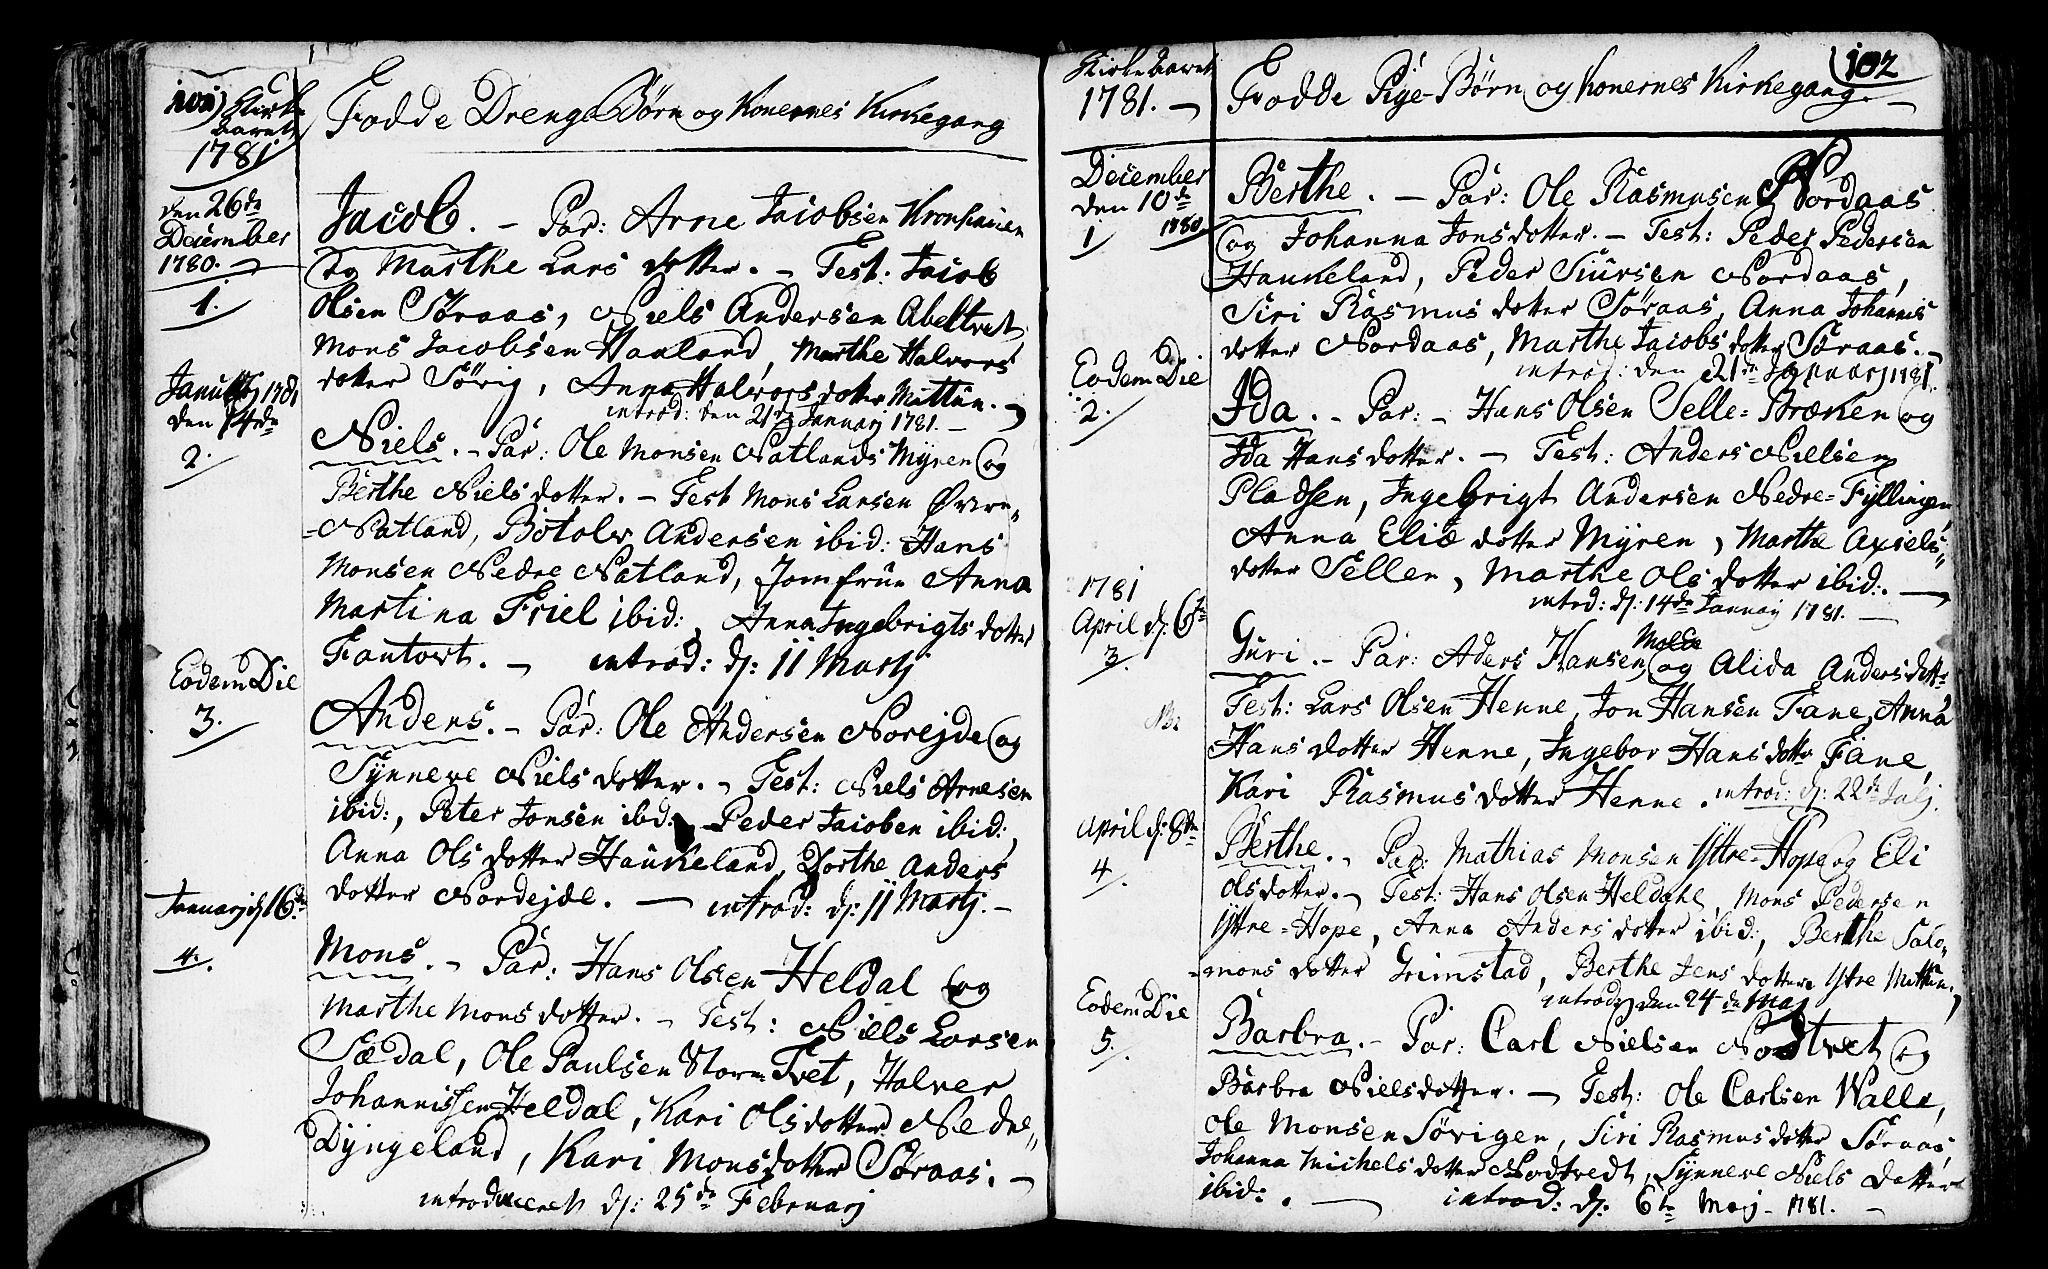 101) Kirke
aaret
1781
Fødde Drenge Børn og Konernes Kirkegang
den 26de
December
1780. –
1.
Jacob. – Par: Arne Jacobsen Kronhauen
og Marthe Lars dotter. – Test: Jacob
Olsen Søraas, Niels Andersen Abeltvet,
Mons Jacobsen Hauland, Marthe Halvors
dotter Sørig, Anna Halvors dotter Mittun. –
introd: den 21de Januarj 1781. –
Januarj 1781
den 14de
2.
Niels. – Par: Ole Monsen Natlands Myren og
Berthe Niels dotter. – Test Mons Larsen Øvre-
-Natland, Botolv Andersen ibid: Hans
Monsen Nedre Natland, Jomfrue Anna
Martina Friel ibid:, Anna Ingebrigts dotter
Fantovt. – introd: d: 11 Martj
Eodem Die
3.
Anders. – Par: Ole Andersen Norejde og
Synneve Niels dotter. – Test: Niels Arnesen
ibid:, Peter Jonsen ibd: Peder Jacoben ibid:,
Anna Ols dotter Haukeland, Dorthe Anders
dotter Nordejde. – introd: d: 11 Martj. –
Januarj d 16de
4.
Mons. – Par: Hans Olsen Heldal og
Marthe Mons dotter. – Test: Niels Larsen
Sædal, Ole Paulsen Storm Tvet, Halver
Johannissen Heldal, Kari Ols dotter Nedre-
Dyngeland, Kari Mons dotter Søraas. –
introduceret d: 25de Februarj
Kirke aaret
1781. –
(102
Fødde Pige-Børn og Konernes Kirkegang. –
December
den 10de
1780
1
Berthe. – Par: Ole Rasmusen Nordaas
og Johanna Jons dotter. – Test: Peder Pedersen
Haukeland, Peder Siursen Nordaas,
Siri Rasmus dotter Søraas, Anna Johannis
dotter Nordaas, Marthe Jacobs dotter Søraas. –
introd: den 21de Januarj 1781.
Eodem Die
2.
Ida. – Par: – Hans Olsen Selle-Bræken og
Ida Hans dotter. – Test: Anders Nielsen
Pladsen, Ingebrigt Andersen Nedre-Fyllingen,
Anna Eliæ dotter Myren, Marthe Axsels-
dotter Sellen, Marthe Ols dotter ibid:. –
introd: d: 14de Januarj 1781. –
1781
April d: 6te
3.
Guri. – Par: Aders Hansen, og Alida Anders dotter
Test: Lars Olsen Henne, Jon Hansen Fane, Anna
Hans dotter Henne, Ingebor Hans dotter Fane,
Kari Rasmus dotter Henne. introd: d: 22de Julj.
April d: 8de
4.
Berthe. – Par: Mathias Monsen Yttre-Hope og Eli
Olsdotter. – Test: Hans Olsen Heldahl, Mons Pedersen
Yttre-Hope, Anna Anders dotter ibid:, Berthe Salo-
mons dotter Grimstad, Berthe Jens dotter Ytre Mittun.
introd: den 24de Maj
Eodem Die
5.
Barbra. – Par: Carl Nielsen Nodtvet og
Barbra Nielsdotter. – Test: Ole Carlsen Walle,
Ole Monsen Sørigen, Siri Rasmus dotter Søraas,
Johanna Michels dotter Nodtvedt, Synneve Niels Dotter
ibid:. – introd: d: 6te Maj – 1781. –